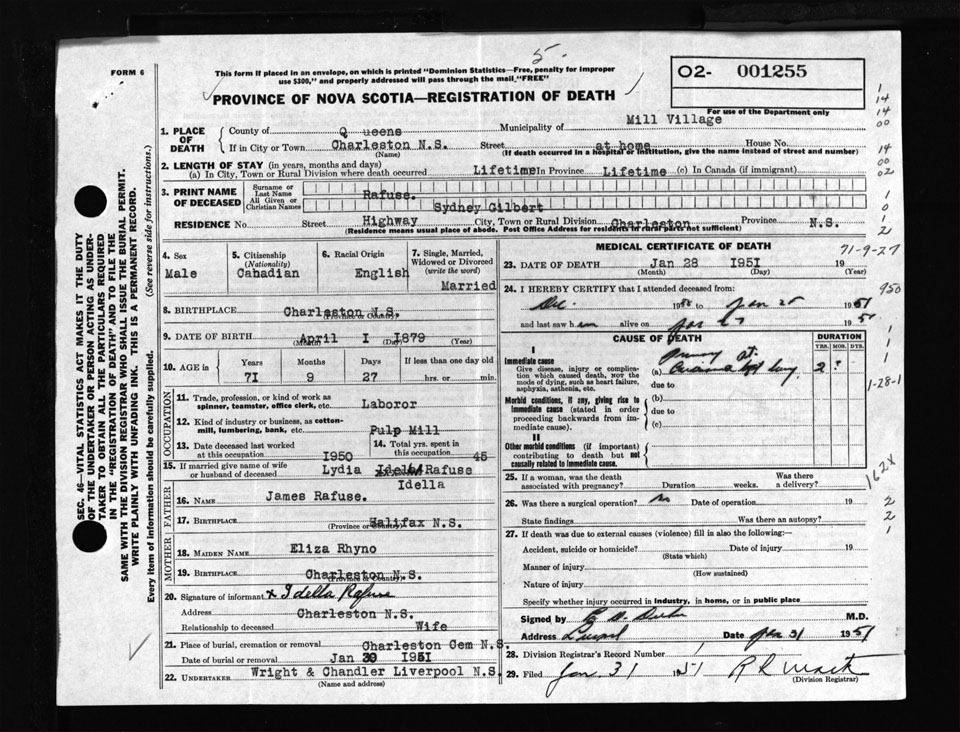 5-
FORM 6
This form if placed in an envelope, on which is printed "Dominion Statistics—Free, penalty for improper
use $300," and properly addressed will pass through the mail "FREE"
PROVINCE OF NOVA SCOTIA—REGISTRATION OF DEATH
O2- 001255
For use of the Department only
1. PLACE OF DEATH
County of Q ueens Municipality of Mill Village
If in City or Town Charleston N.S. Street at home House No.
(Name) (If death occurred in a hospital or institution, give the name instead of street and number)
2. LENGTH OF STAY (in years, months and days)
(a) In City, Town or Rural Division where death occurred Lifetime In Province Lifetime (c) In Canada (if immigrant)
3. PRINT NAME OF DECEASED
Surname or Last Name Rafuse.
All Given or Christian Names Sydney Gilbert
RESIDENCE No. Street Highway City, Town or Rural Division Charleston Province N.S.
(Residence means usual place of abode. Post Office Address for residents in rural parts not sufficient)
4. Sex
Male
5. Citizenship
(Nationality)
Cahadian
6. Racial Origin
English
7. Single, Married, Widowed or Divorced
(write the word)
Married
8. BIRTHPLACE Charleston N.S.
(Province or Country)
9. DATE OF BIRTH April I I879
(Month) (Day) (Year)
10. AGE in
Years Months Days If less than one day old
7I 9 27 hrs. or min.
OCCUPATION
11. Trade, profession, or kind of work as
spinner, teamster, office clerk, etc. Laboror
12. Kind of industry or business, as cotton-
mill, lumbering, bank, etc. Pulp Mill
13. Date deceased last worked
at this occupation I950
14. Total yrs. spent in
this occupation 45
15. If married give name of wife
or husband of deceased Lydia Rafuse
Idella
FATHER
16. NAME James Rafuse.
17. BIRTHPLACE Halifax N.S.
(Province or Country)
MOTHER
18. MAIDEN NAME Eliza Rhyno
19. BIRTHPLACE Charleston N.S.
(Province or Country)
20. Signature of informant x Idella Rafuse
Address Charleston N.S.
Relationship to deceased Wife
21. Place of burial, cremation or removal Charleston Cem N.S.
Date of burial or removal Jan 30 I95I
22. UNDERTAKER Wright & Chandler Liverpool N.S.
(Name and address)
MEDICAL CERTIFICATE OF DEATH
71-9-27
23. DATE OF DEATH Jan 28 I95I 19
(Month) (Day) (Year)
24. I HEREBY CERTIFY that I attended deceased from:
Dec. 19 to Jan 19 51
and last saw h alive on Jan 19
CAUSE OF DEATH
DURATION
YRS. MOS. DYS.
I
Immediate cause
Give disease, injury or complica-
tion which caused death, NOT the
mode of dying, such as heart failure,
asphyxia, asthenia, etc.
(a)
2 ?
due to
Morbid conditions, if any, giving rise to
immediate cause (stated in order
proceeding backwards from im-
mediate cause).
(b)
due to
(c)
II
Other morbid conditions (if important)
contributing to death but not
causally related to immediate cause.
25. If a woman, was the death
associated with pregnancy? Duration weeks. Was there a delivery?
26. Was there a surgical operation? no Date of operation 19
State findings Was there an autopsy?
27. If death was due to external causes (violence) fill in also the following:—
Accident, suicide or homicide? Date of injury 19
(State which)
Manner of injury
(How sustained)
Nature of injury
Specify whether injury occurred in industry, in home, or in public place
Signed by M.D.
Address Date Jan 31 1951
28. Division Registrar's Record Number 1
29. Filed Jan 31 1951
(Division Registrar)
SEC. 46—VITAL STATISTICS ACT MAKES IT THE DUTY
OF THE UNDERTAKER OR PERSON ACTING AS UNDER-
TAKER TO OBTAIN ALL THE PARTICULARS REQUIRED
IN THE "REGISTRATION OF DEATH" AND TO FILE THE
SAME WITH THE DIVISION REGISTRAR WHO SHALL ISSUE THE BURIAL PERMIT.
WRITE PLAINLY WITH UNFADING INK. THIS IS A PERMANENT RECORD.
Every item of information should be carefully supplied. (See reverse side for instructions.)
1
14
14
00
14
00
02
1
0
1
2
950
1-28-1
162X
2
2
1